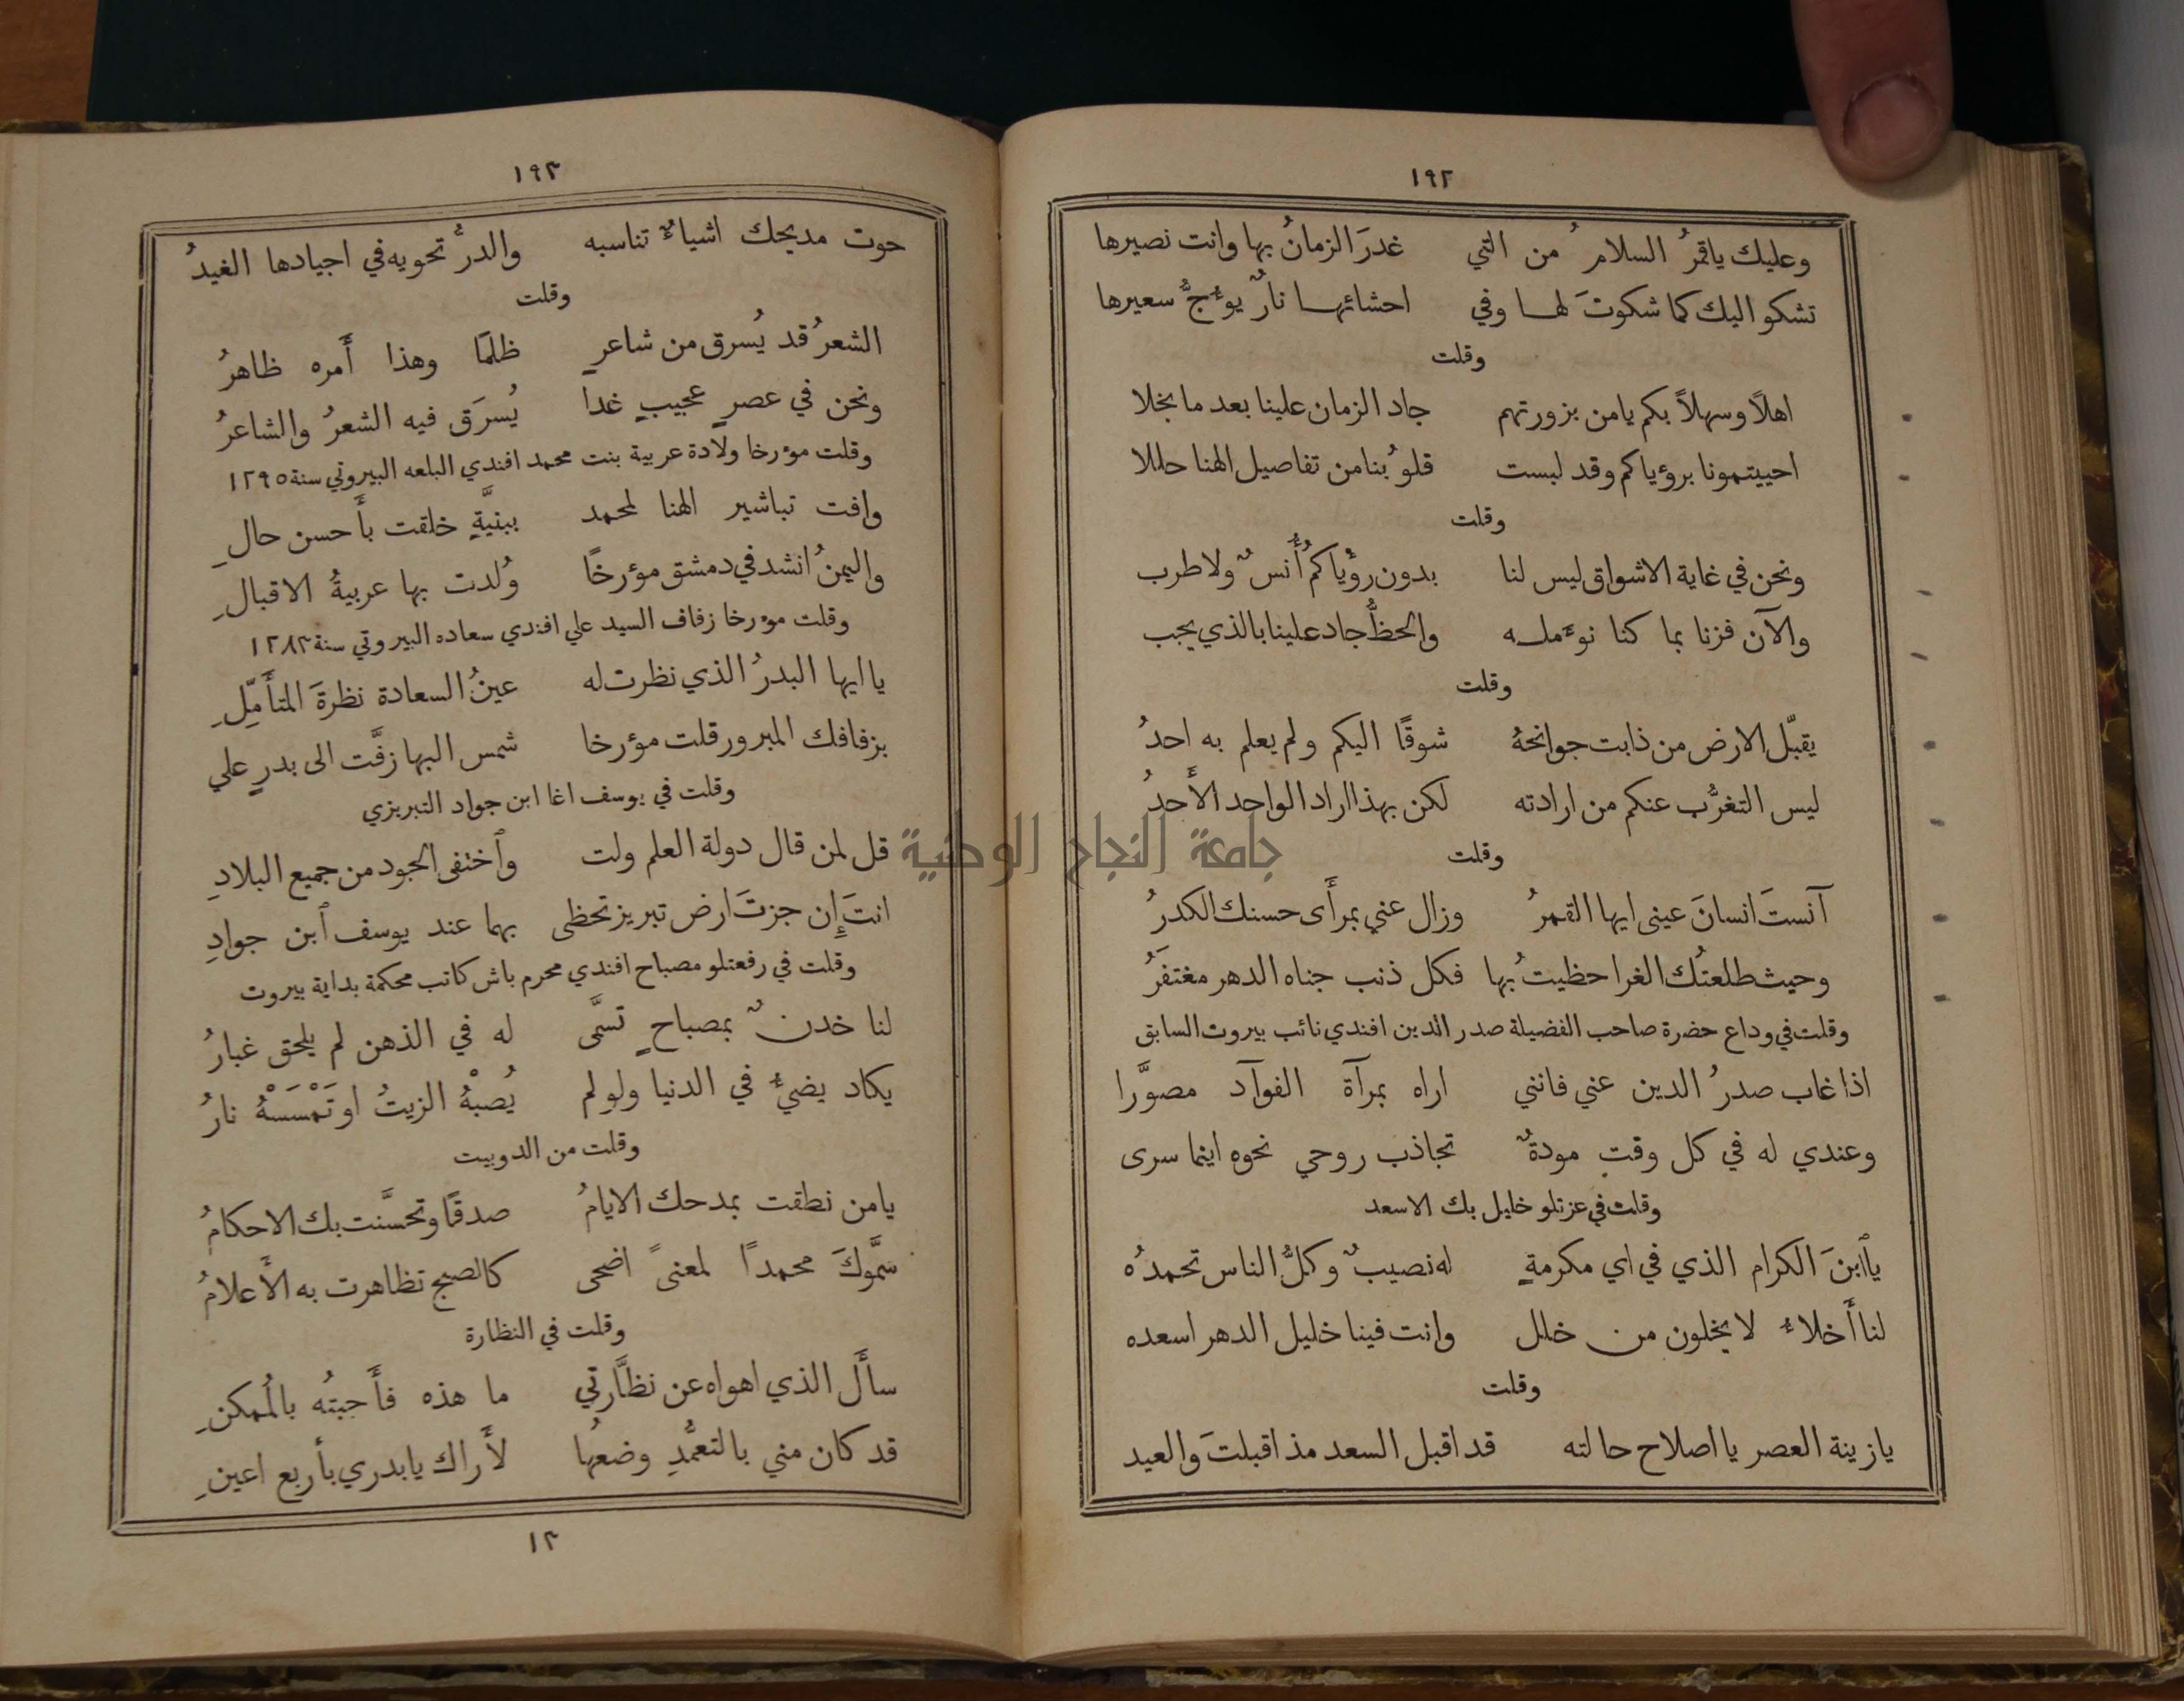 ١٩٢
وعليك ياقمرُ السلامُ من التي غدرَ الزمانُ بها وانت نصيرها
تشكو اليك كما شكوتَ لها وفي احشائها نارٌ يوءَجُّ سعيرها
وقلت
اهلاً وسهلاً بكم يامن بزورتهم جاد الزمان علينا بعد ما بخلا
احييتمونا برؤياكم وقد لبست قلوبُنا من تفاصيل الهنا حللا
وقلت
ونحن في غاية الاشواق ليس لنا بدون رؤياكمُ أُنسٌ ولا طرب
والآن فزنا بما كنا نوءمله والحظُّ جاد علينا بالذي يجب
وقلت
يقبّل الارض من ذابت جوانحهُ شوقًا اليكم ولم يعلم به احدُ
ليس التغرُّب عنكم من ارادته لكن بهذا اراد الواحد الأَحدُ
وقلت
آنستَ انسانَ عيني ايها القمرُ وزال عني بمرأَى حسنك الكدرُ
وحيث طلعتُك الغرا حظيتُ بها فكل ذنب جناه الدهر مغتفَرُ
وقلت في وداع حضرة صاحب الفضيلة صدر الدين افندي نائب بيروت السابق
اذا غاب صدرُ الدين عني فانني اراه بمرآة الفوآد مصوَّرا
وعندي له في كل وقتٍ مودةٌ تجاذب روحي نحوه اينما سرى
وقلت في عزتلو خليل بك الاسعد
ياٱبنَ الكرام الذي في اي مكرمةٍ له نصيبٌ وكلُّ الناس تحمدُه
لنا أَخلاءُ لا يخلون من خلل وانت فينا خليل الدهر اسعده
وقلت
يازينة العصر يا اصلاح حالته قد اقبل السعد مذ اقبلتَ والعيد
١٩٣
حوت مديحك اشياءً تناسبه والدرُّ تحويه في اجيادها الغيدُ
وقلت
الشعرُ قد يُسرق من شاعرٍ ظلمًا وهذا أَمره ظاهرُ
ونحن في عصرٍ عجيبٍ غدا يُسرَق فيه الشعرُ والشاعرُ
وقلت مؤرخا ولادة عربية بنت محمد افندي البلعه البيروتي سنة ١٢٩٥
وافت تباشير الهنا لمحمد ببنيَّةٍ خلقت بأَحسن حالِ
واليمنُ انشد في دمشق مؤرخًا وُلدت بها عربيةُ الاقبالِ
وقلت مؤرخا زفاف السيد علي افندي سعاده البيروتي سنة ١٢٨٣
يا ايها البدرُ الذي نظرت له عينُ السعادة نظرةَ المتأَمّلِ
بزفافك المبرور قلت مؤرخا شمس البها زفَّت الى بدرٍ علي
وقلت في يوسف اغا ابن جواد التبريزي
قل لمن قال دولة العلم ولت وٱختفى الجود من جميع البلادِ
انتَ إِن جزتَ ارض تبريز تحظى بهما عند يوسف ٱبن جوادِ
وقلت في رفعتلو مصباح افندي محرم باش كاتب محكمة بداية بيروت
لنا خدنٌ بمصباحٍ تسمَّى له في الذهن لم يلحق غبارُ
يكاد يضيءُ في الدنيا ولو لم يُصبْهُ الزيتُ او تَمْسَسْهُ نارُ
وقلت من الدوبيت
يامن نطقت بمدحك الايامُ صدقًا وتحسَّنت بك الاحكامُ
سمَّوكَ محمداً لمعنىً اضحى كالصبح تظاهرت به الأَعلامُ
وقلت في النظارة
سأَل الذي اهواه عن نظَّارتي ما هذه فأَجبتُه بالمُمكنِ
قد كان مني بالتعمُّدِ وضعُها لأَراك يابدري بأربع اعينِ
١٣
جامعة النجاح الوطنية